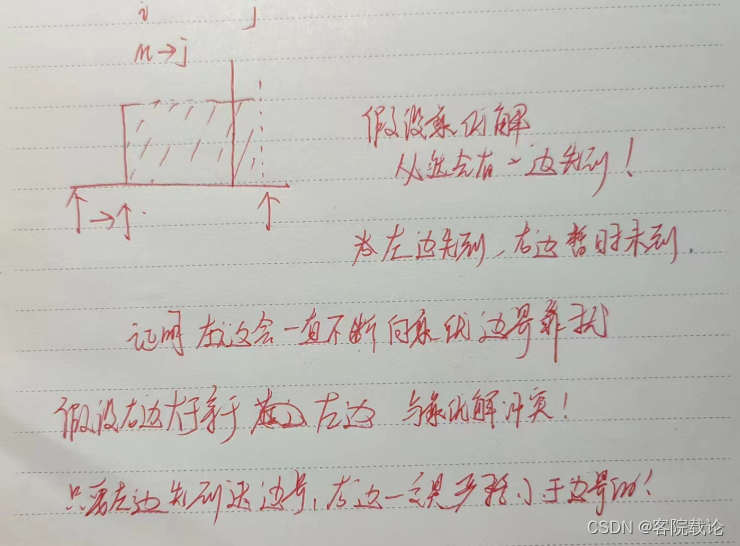 i j
n→j
假设最优解
必然会有一边先到!
为左边先到,右边暂时未到.
证明 左边会一直不断向最优边界靠拢
假设右边大于等于 左边 与最优解冲突!
只要左边先到达边界,右边一定是严格小于边界的!
CSDN @客院载论